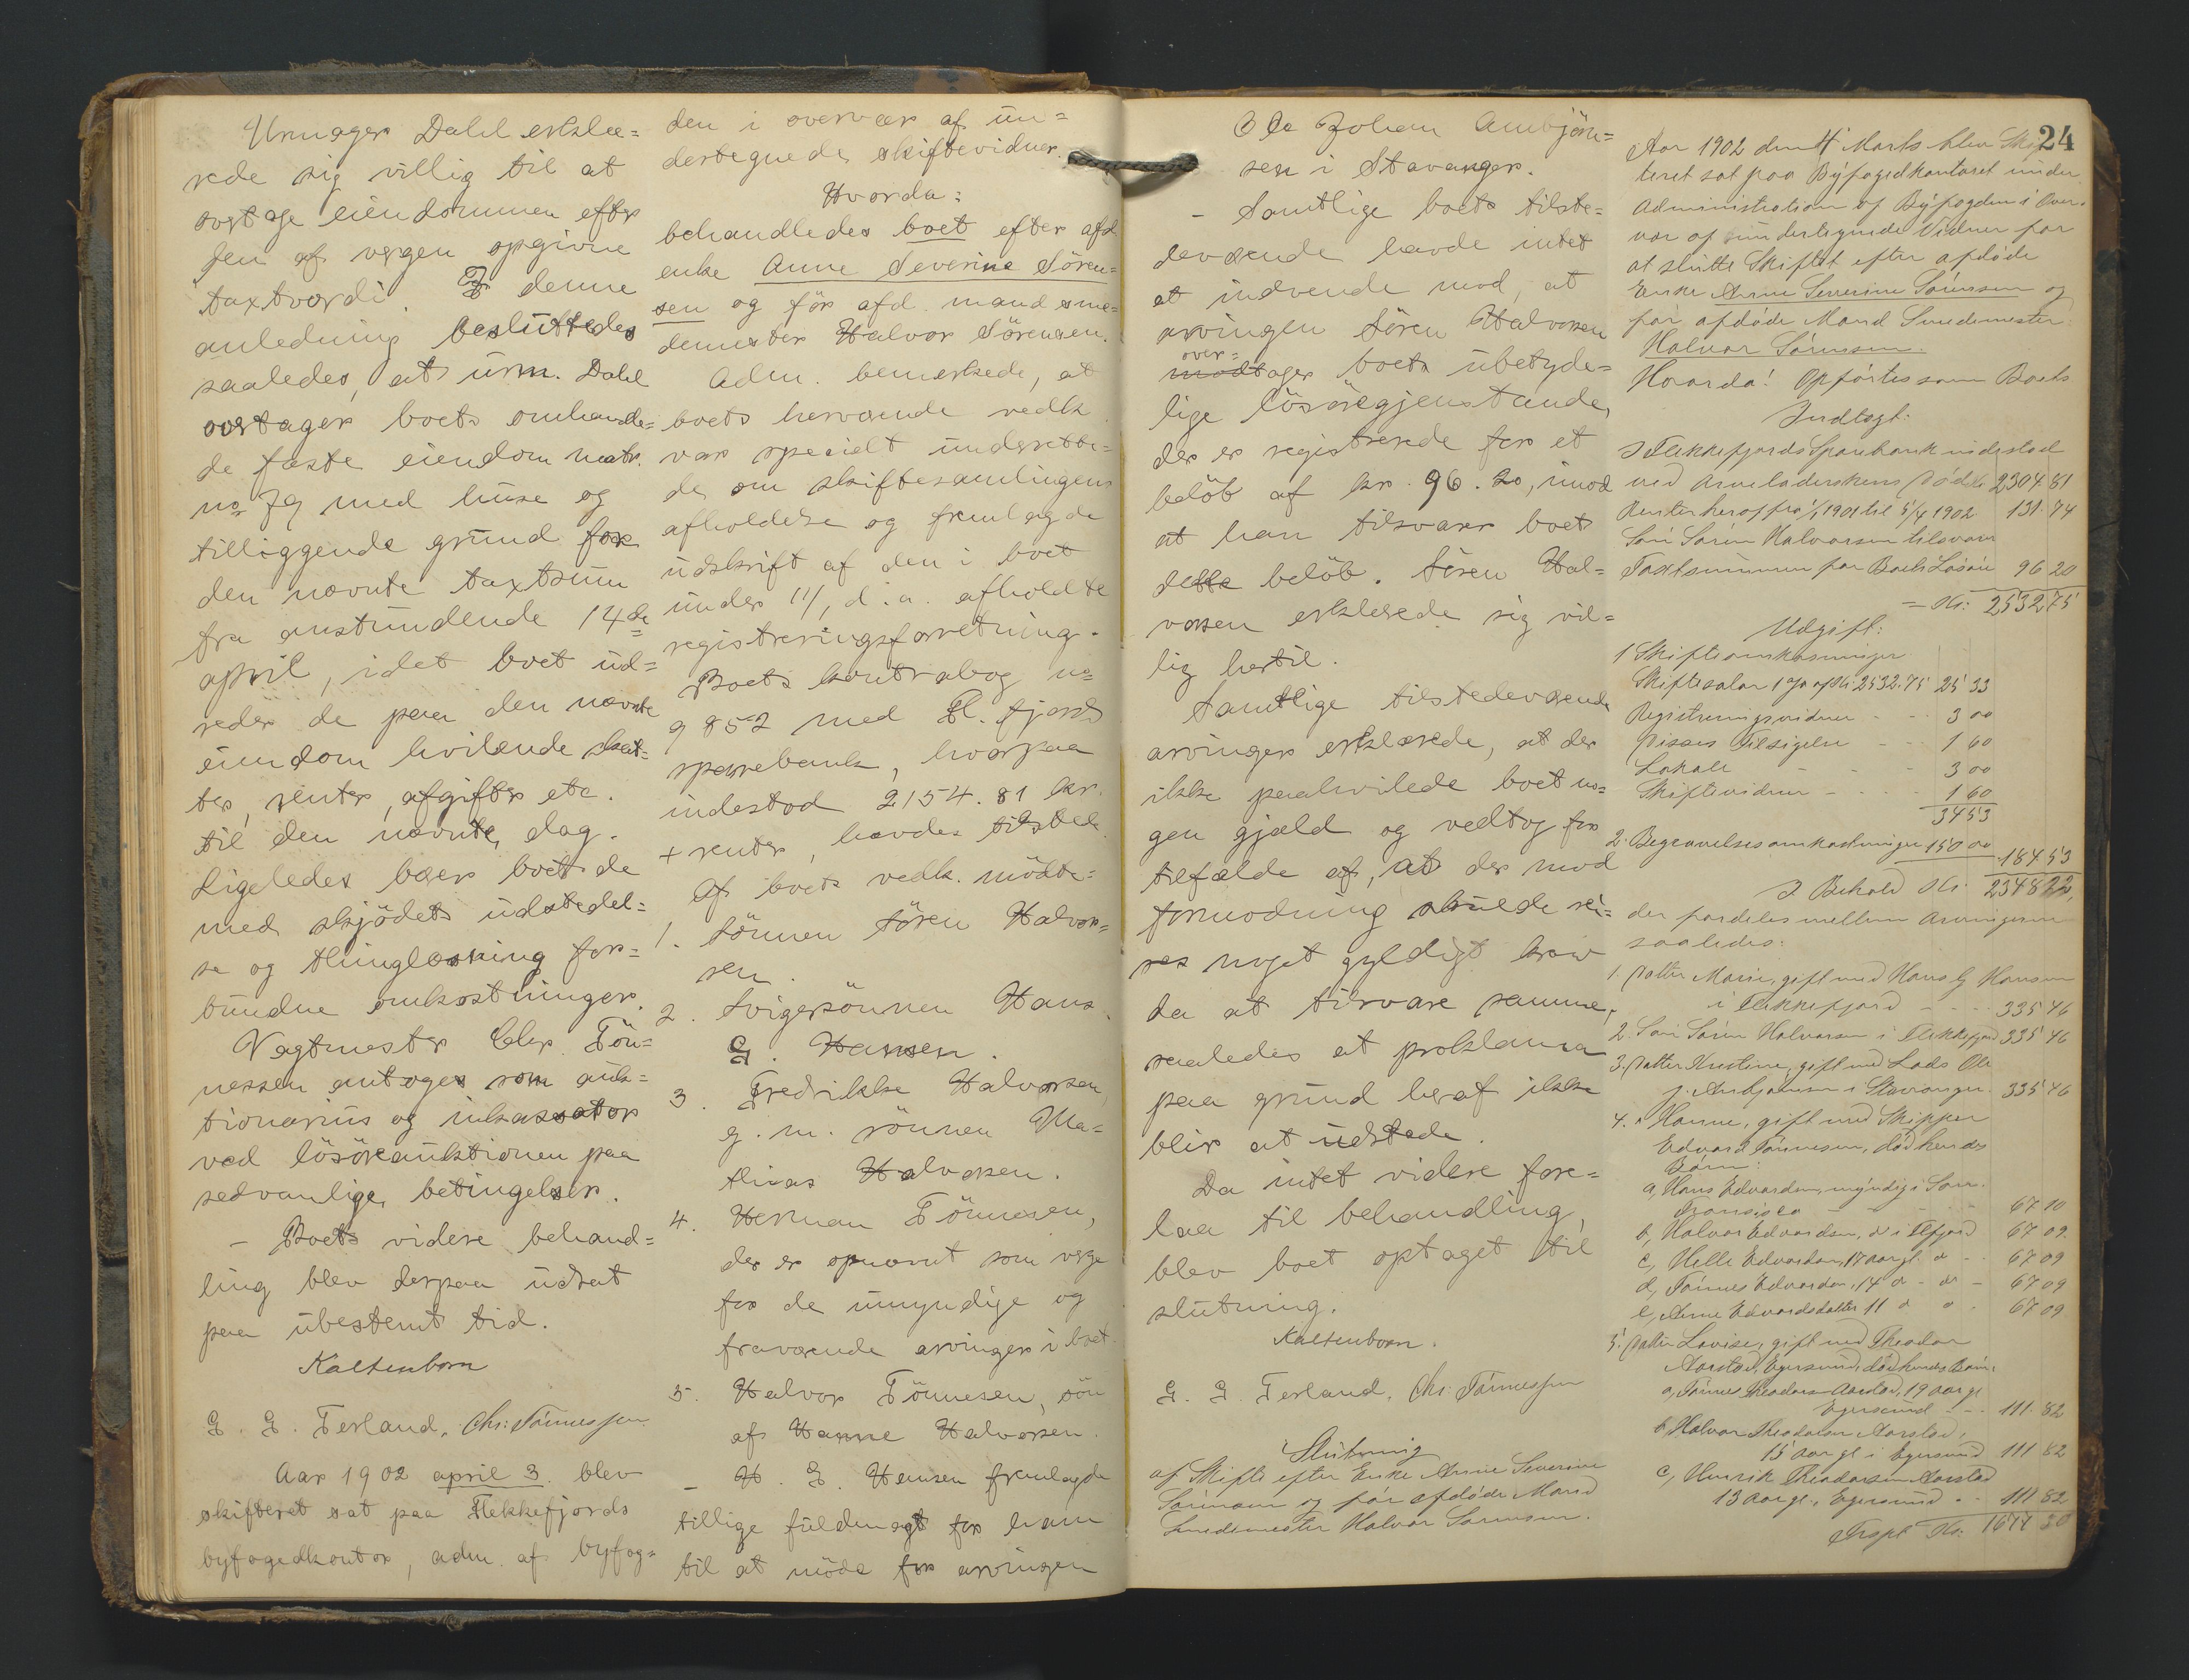 Urmager Dahl erklæ=
rede sig villig til at
overtage eiendommen efter
den af vergen opgivne
taxtværdi. I denne
anledning besluttedes
saaledes, at urm. Dahl
overtager boets omhande=
de faste eiendom matr.
no med huse og
tilliggende grund for
den nævnte taxtsum
fra anstundende 14de
april, idet boet ud=
reder de paa den nævnte
eiendom hvilende skat=
ter, renter, afgifter etc.
til den nævnte dag.
Ligeledes bærer boet de
med skjødets udstedel=
se og thinglæsning for=
bundne omkostninger.
Vegtmester Chr. Tön=
nessen antoges som auk=
tionarius og inkassator
ved lösöreauktionen paa
sedvanlige betingelser.
– Boets videre behand=
ling blev derpaa udsat
paa ubestemt tid.
Kaltenborn
G. G. Ferland. Chr: Tönnessen
Aar 1902 april 3. blev
skifteret sat paa Flekkefjords
byfogedkontor, adm. af byfog=
den i overvær af un=
dertegnede skiftevidner.
Hvorda:
behandledes boet efter afd
enke Anne Severine Sören=
sen og för afd. mand sme=
demester Halvor Sörensen.
Adm. bemerkede, at
boets herværende vedk.
var specielt underrette=
de om skiftesamlingens
afholdelse og fremlagde
udskrift af den i boet
under 11/, d. a. afholdte
registreringsforretning.
Boets kontrabog no
9852 med Fl. fjords
sparebank, hvorpaa
indestod 2154.81 kr.
+ renter, havdes tilstede.
Af boets vedk. mödte:
1. Sönnen Sören Halvor=
sen.
2. Svigersönnen Hans
G. Hansen.
3. Fredrikke Halvorsen
g. m. sönnen Ma=
thias Halvorsen.
4. Herman Tönnesen,
der er opnævnt som verge
for de umyndige og
fraværende arvinger i boet.
5. Halvor Tönnesen, sön
af Hanne Halvorsen.
– H. G. Hansen fremlagde
tillige fuldmagt for ham
til at möde for arvingen
Ole Johan Ambjörn=
sen i Stavanger.
– Samtlige boets tilste=
deværende havde intet
at indvende mod, at
arvingen Sören Halvorsen
over=
modtager boets ubetyde=
lige lösöregjenstande,
der er registrerede for et
belöb af kr. 96.20, imod
at han tilsvarer boet
dette belöb. Sören Hal=
vorsen erklærede sig vil=
lig hertil.
Samtlige tilstedeværende
arvinger erklærede, at der
ikke paahvilede boet no=
gen gjæld og vedtog for
tilfælde af, at der mod
formodning skulde rei=
ses noget gyldigt krav
da at tilsvare samme,
saaledes at proklama
paa grund heraf ikke
blir at udstede.
Da intet videre fore=
laa til behandling,
blev boet optaget til
slutning.
Kaltenborn.
G. G. Ferland. Chr: Tönnessen
Slutning
af Skifte efter Enke Anne Severine
Sörensen og för afdöde Mand
Smedemester Halvor Sörensen.
24
Aar 1902 den 4 Marts blev Skif
teret sat paa Byfogedkontoret under
Administration af Byfogden i Over=
vær af undertegnede Vidner for
at slutte Skiftet efter afdöde
Enke Anne Severine Sörensen og
för afdöde Mand Smedemester
Halvor Sörensen.
Hvorda! Opförtes som Boets
Indtægt:
I Flekkefjords Sparebank indestod
ved Arveladerskens Död 2304 81
Renter heraf fra 1/1 1901 til 5/4 1902 131.74
Sön Sören Halvorsen tilsvarer
Taxtsummen for Boets Lösöre 96 20
= Kr: 2532,75
Udgift:
1 Skifteomkostninger
Skiftesalær 1 % af Kr: 2532.75 25 33
Registreringsvidner - - 3 00
Disses Tilsigelse - - 1 60
Lokale - - - 3 00
Skiftevidner - - - 1 60
34 53
2. Begravelsesomkostninger 150 00 184 53
I Behold Kr. 2348 22,
der fordeles mellem Arvingerne
saaledes:
1. Datter Marie, gift med Hans G Hansen
i Flekkefjord - - - 335 46
2. Sön Sören Halvorsen i Flekkefjord 335 46
3. Datter Kirstine, gift med Lods Ole
J. Ambjörnsen i Stavanger. 335 46
4. " Hanne, gift med Skipper
Edvard Tönnesen, död hendes
Börn:
a, Hans Edvardsen, myndig i San
Fransisko - - - 67 10
b, Halvor Edvardsen, do i Flfjord 67 09
c, Helle Edvardsen, 17 aar gl. do - 67 09
d, Tönnes Edvardsen, 14 do - do - 67 09
e, Anne Edvardsdatter 11 do do - 67 09
5. Datter Lovise, gift med Theodor
Aarstad, Egersund, död hendes Börn:
a, Tönnes Theodorsen Aarstad, 19 aar gl
Egersund - - 111.82
b, Halvor Theodorsen Aarstad,
15 aar gl i Egersund 111 82
c, Henrik Theodorsen Aarstad
13 aar gl., Egersund - - 111 82
Trspt Kr: 1677 30